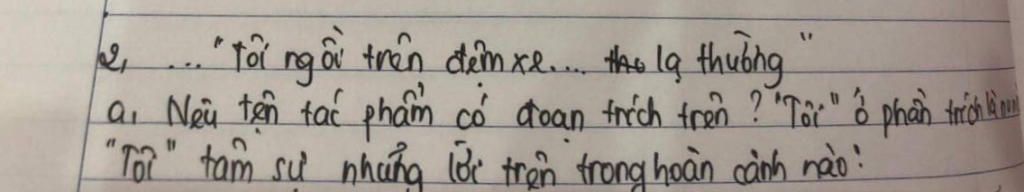 2, ... "Tôi ngồi trên đệm xe.... lạ thường"
a, Nêu tên tác phẩm có đoạn trích trên? "Tôi" ở phần trích là
"Tôi" tâm sự những lời trên trong hoàn cảnh nào?